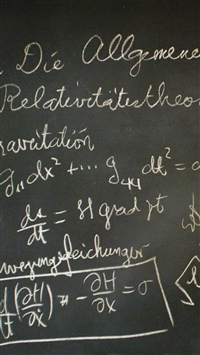 Die Allgemeine
Relativitätstheo
ravitation
g₁₁dx² + ... g₄₄ dt² =
ds/dt = H grad
wegungsgleichungen
∂H/∂ẋ - ∂H/∂x = 0